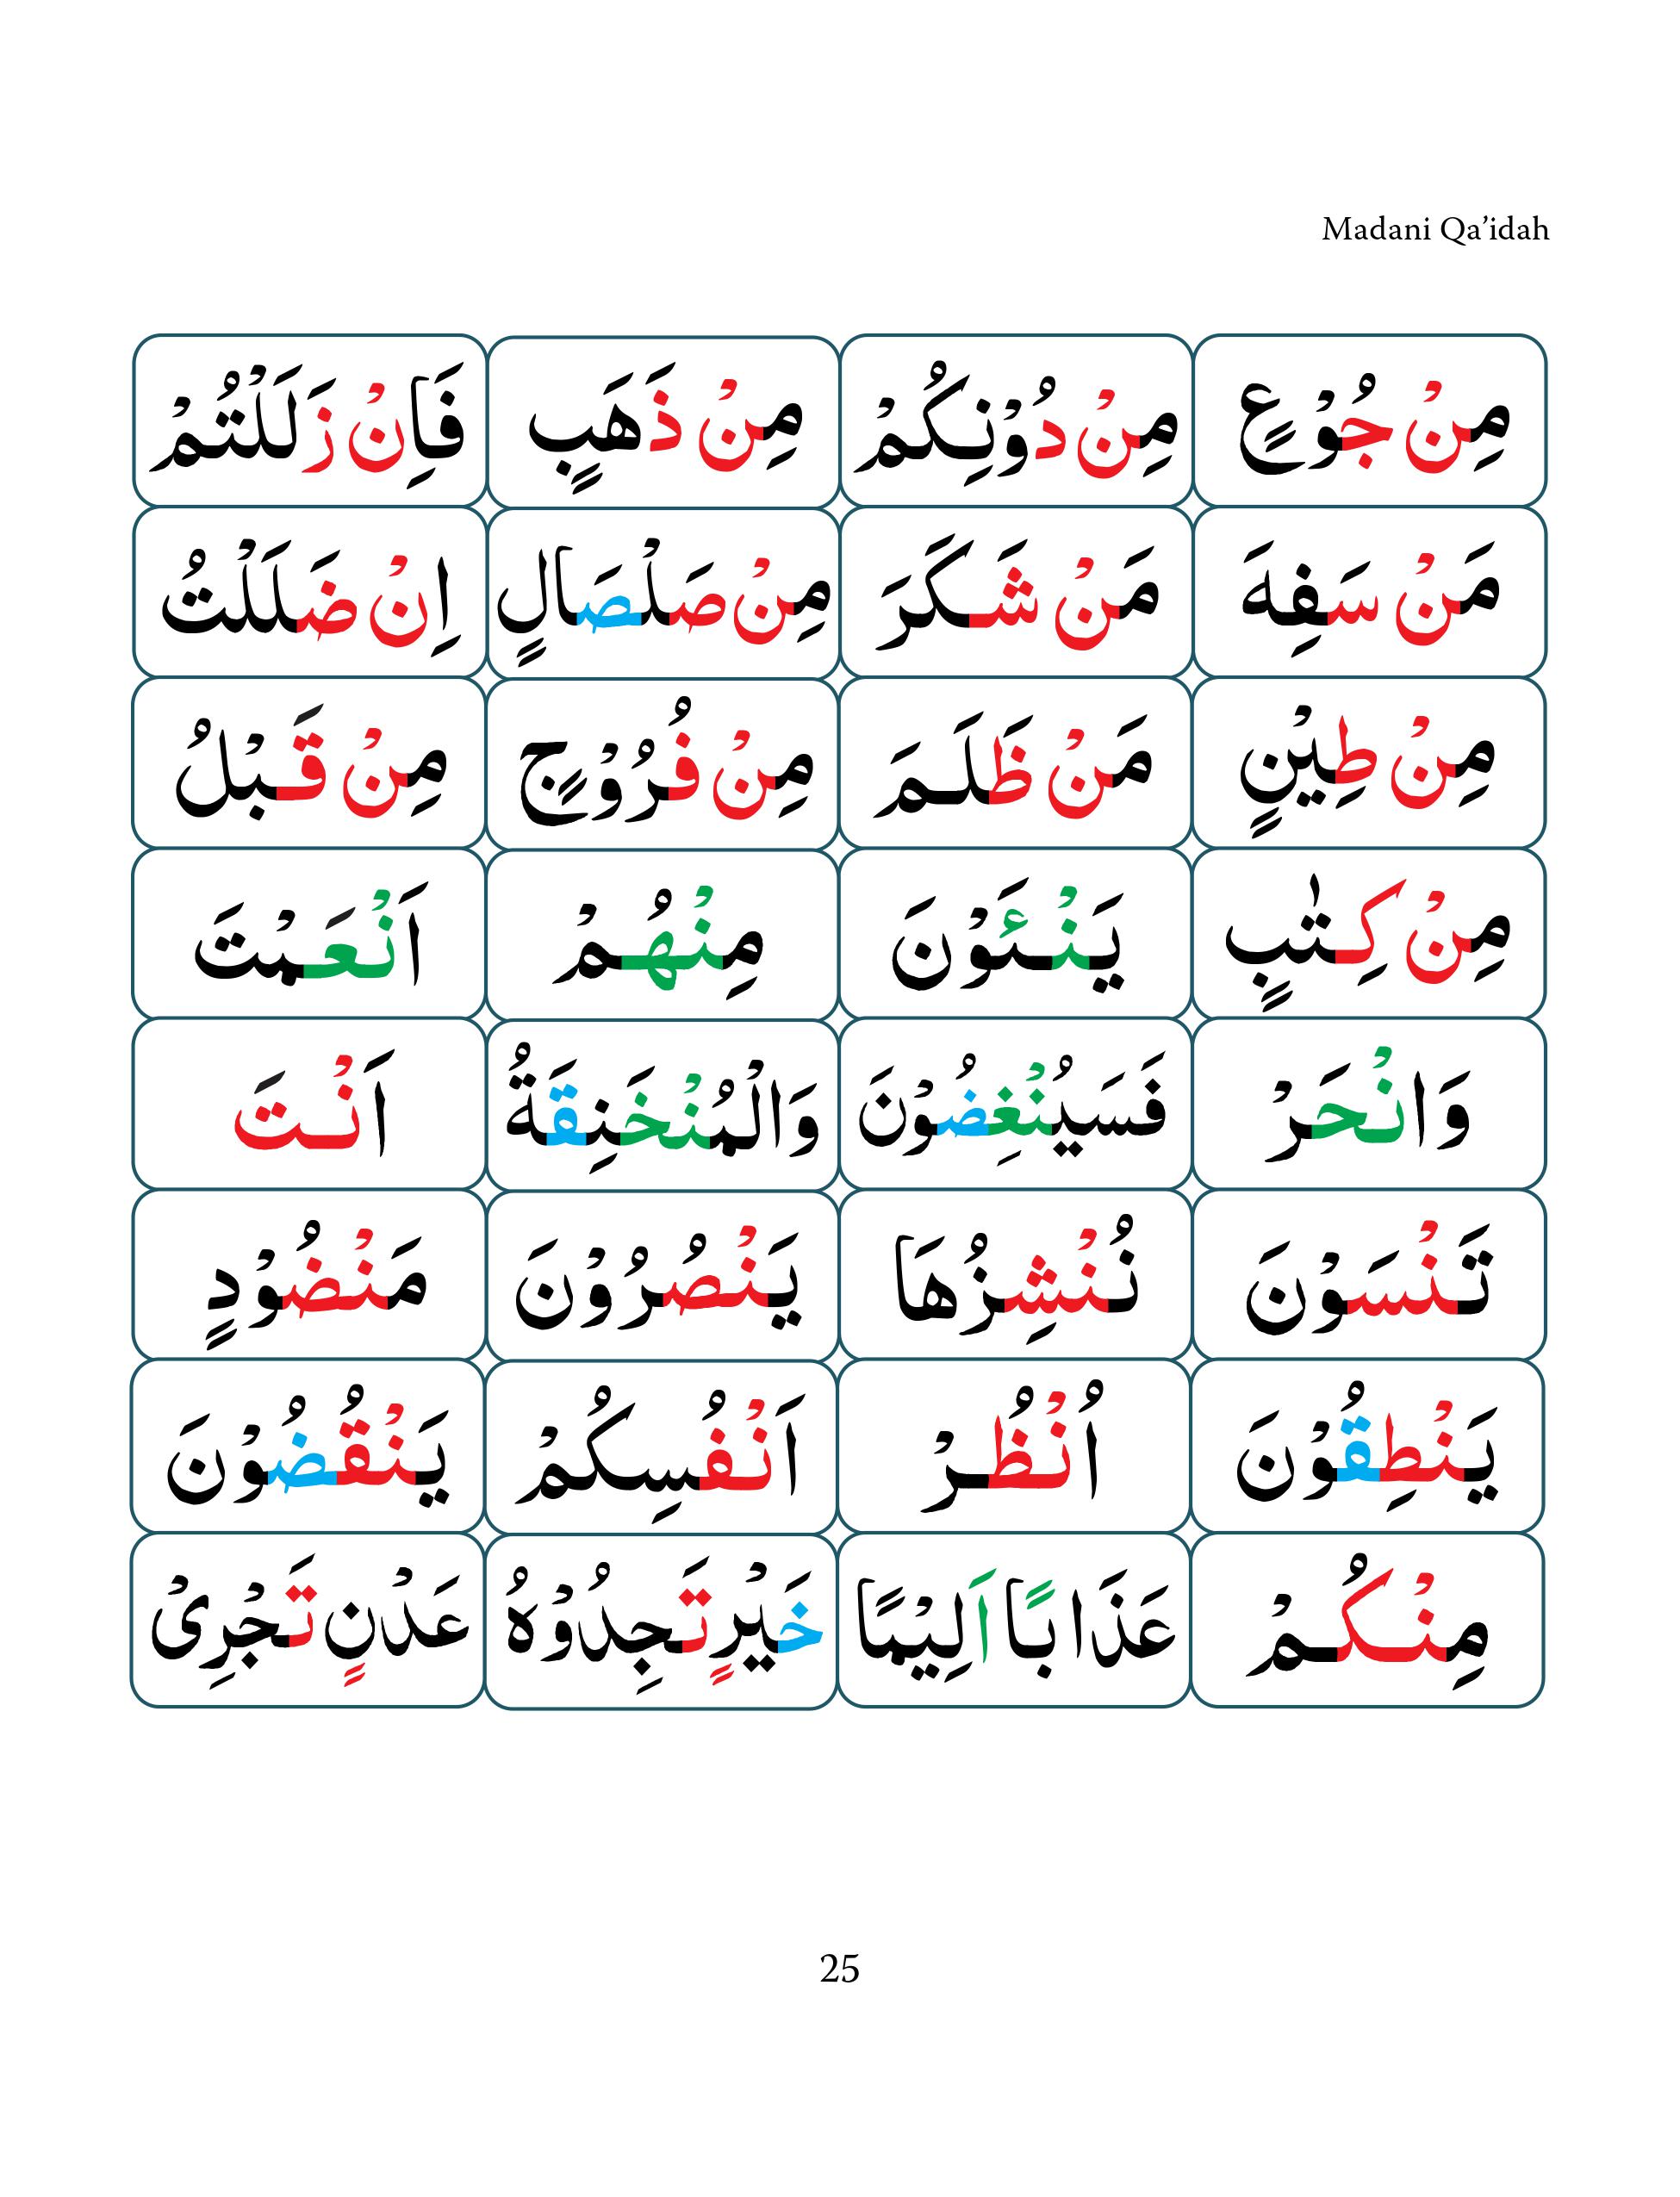 Madani Qa’idah
مِنْ جُوْعٍ مِنْ دُوْنِكُمْ مِنْ ذَهَبٍ فَاِنْ زَلَلْتُمْ
مَنْ سَفِهَ مَنْ شَكَرَ مِنْ صَلْصَالٍ اِنْ ضَلَلْتُ
مِنْ طِيْنٍ مَنْ ظَلَمَ مِنْ فُرُوْجٍ مِنْ قَبْلُ
مِنْ كِتٰبٍ يَنْـَٔوْنَ مِنْهُمْ اَنْعَمْتَ
وَانْحَرْ فَسَيُنْغِضُوْنَ وَالْمُنْخَنِقَةُ اَنْتَ
تَنْسَوْنَ نُنْشِزُهَا يَنْصُرُوْنَ مَنْضُوْدٍ
يَنْطِقُوْنَ اُنْظُرْ اَنْفُسِكُمْ يَنْقُضُوْنَ
مِنْكُمْ عَذَابًا اَلِيْمًا خَيْرٍ تَجِدُوْهُ عَدْنٍ تَجْرِىْ
25